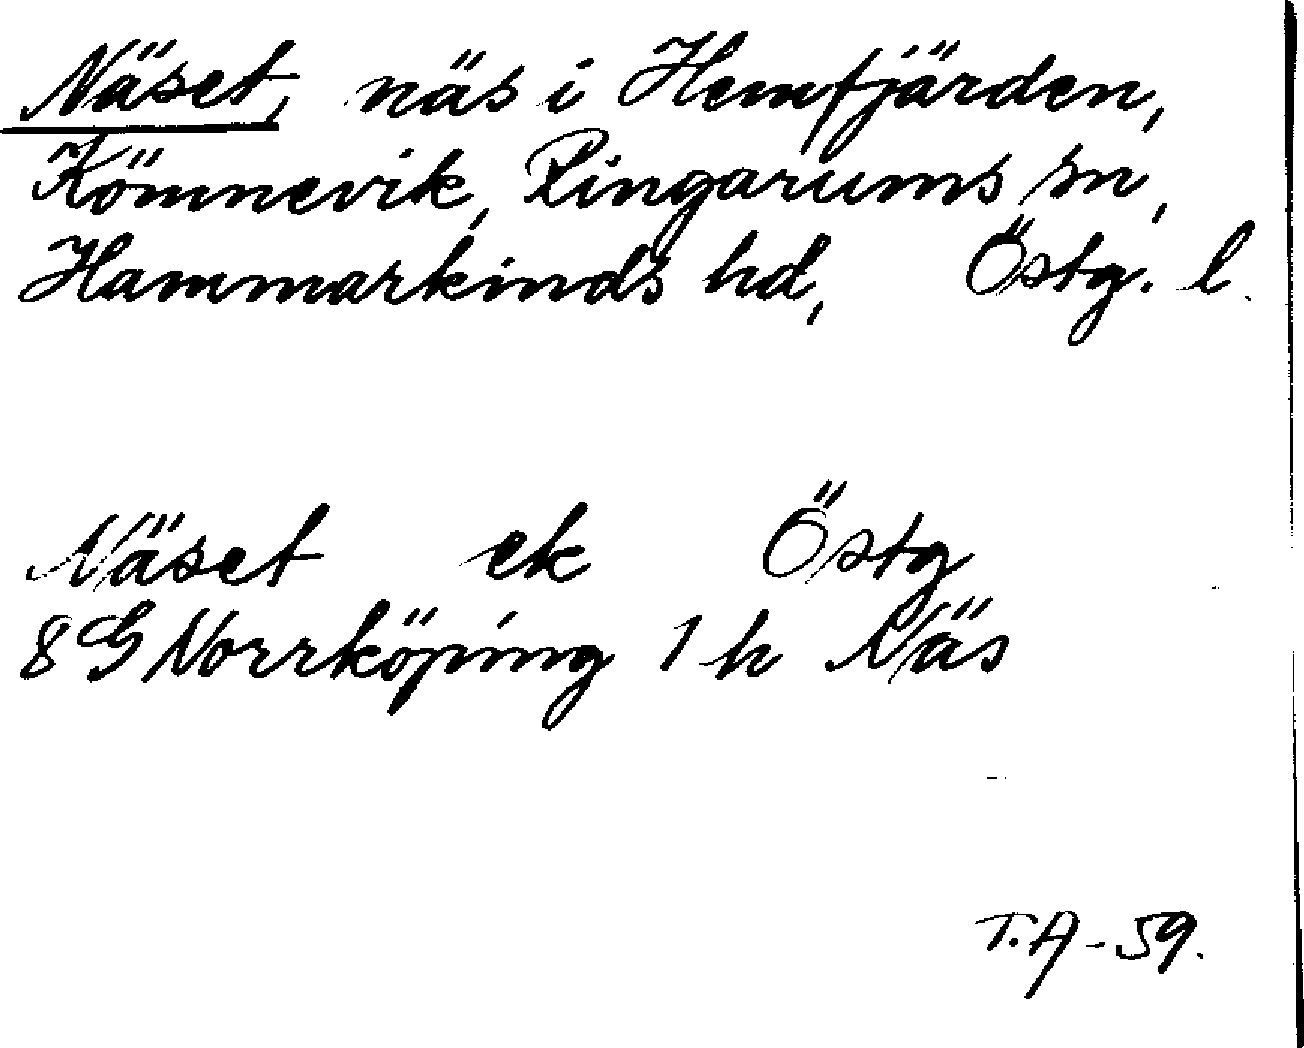 Näset, näs i Hemfjärden,
Kömnevik, Ringarums sn,
Hammarkinds hd, Östg. l.
Näset ek Östg
8 G Norrköping 1 h Näs
T.A-59.